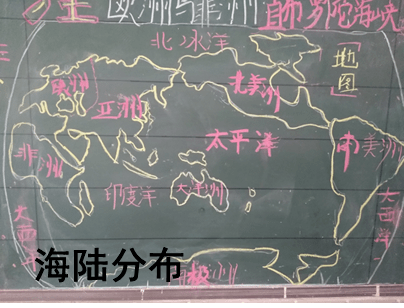 欧洲与非洲
直布罗陀海峡
北冰洋
地图
欧洲
亚洲
北美洲
太平洋
非洲
南美洲
印度洋
大洋洲
大西洋
大西洋
海陆分布